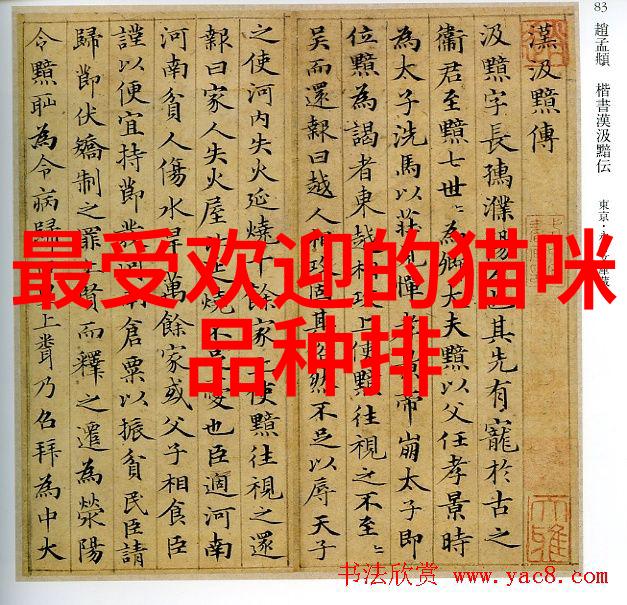 83 趙孟頫 楷書漢汲黯伝 東京・永
漢汲黯傳
汲黯字長孺濮陽其先有寵於古之
衞君至黯七世〻為卿大夫黯以父任孝景時
為太子洗馬以莊見憚帝崩太子即
位黯為謁者東越相攻上使黯往視之不至〻
吳而還報曰越人相攻固其然不足以辱天子
之使河內失火延燒千餘家上使黯往視之還
報曰家人失火屋比延燒不足憂也臣適河南
河南貧人傷水旱萬餘家或父子相食臣
謹以便宜持節發河南倉粟以振貧民臣請
歸節伏矯制之罪上賢而釋之遷為滎陽
令黯恥為令病歸上聞乃召拜為中大
最受欢迎的猫咪
品种排
书法欣赏 www.yac8.com